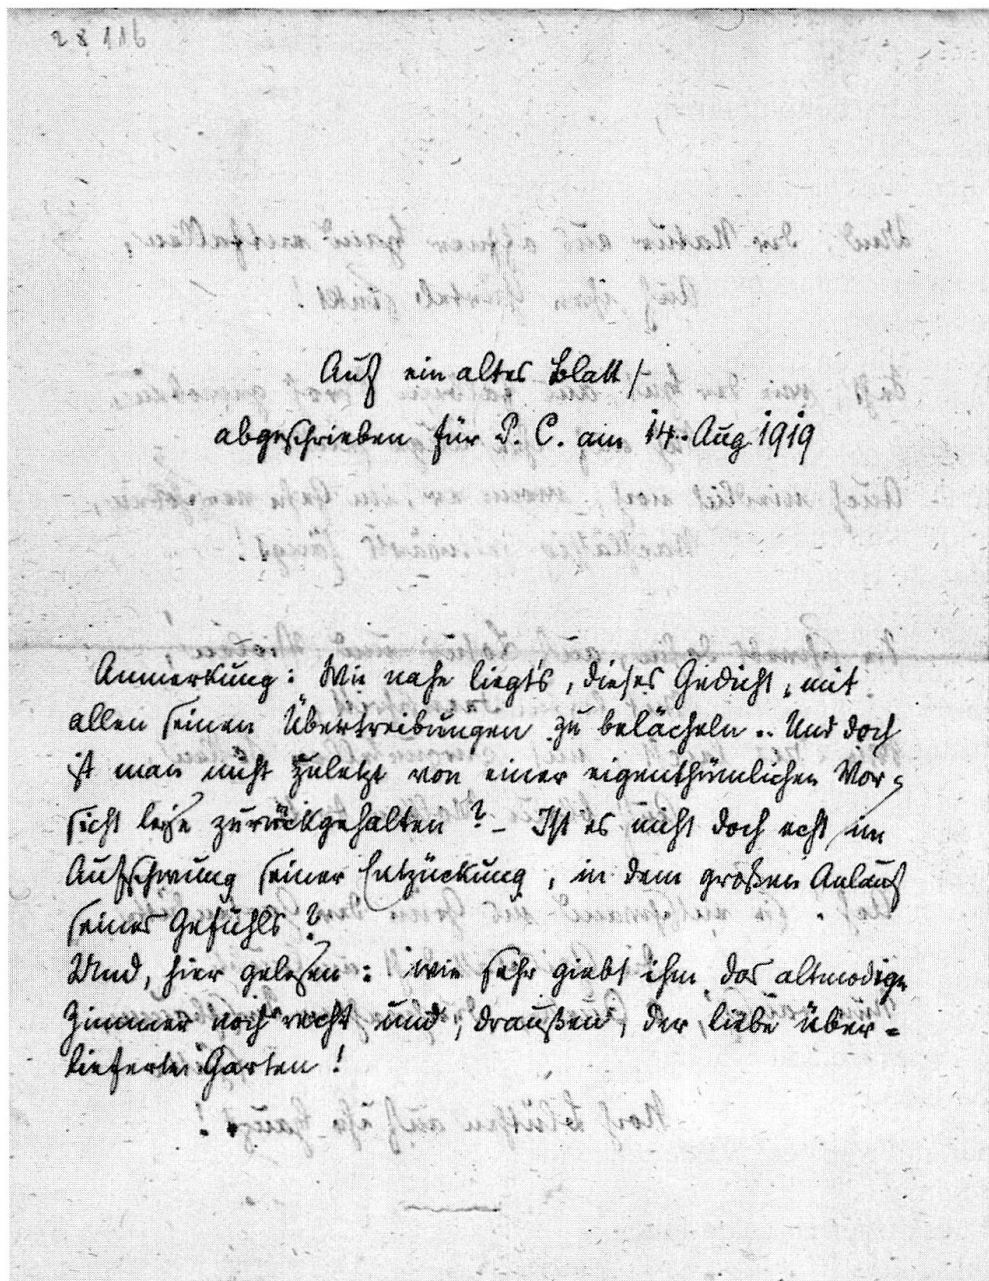 28116
Auf ein altes Blatt /
abgeschrieben für P. C. am 14. Aug 1919
Anmerkung: Wie nahe liegt's, dieses Gedicht, mit
allen seinen Übertreibungen zu belächeln.. Und doch
ist man nicht zuletzt von einer eigenthümlichen Vor-
sicht leise zurückgehalten? – Ist es nicht doch echt im
Aufschwung seiner Entzückung, in dem großen Anlauf
seines Gefühls?
Und, hier gelesen: wie sehr giebt ihm das altmodige
Zimmer noch recht und, draußen, der liebe über-
lieferte Garten!